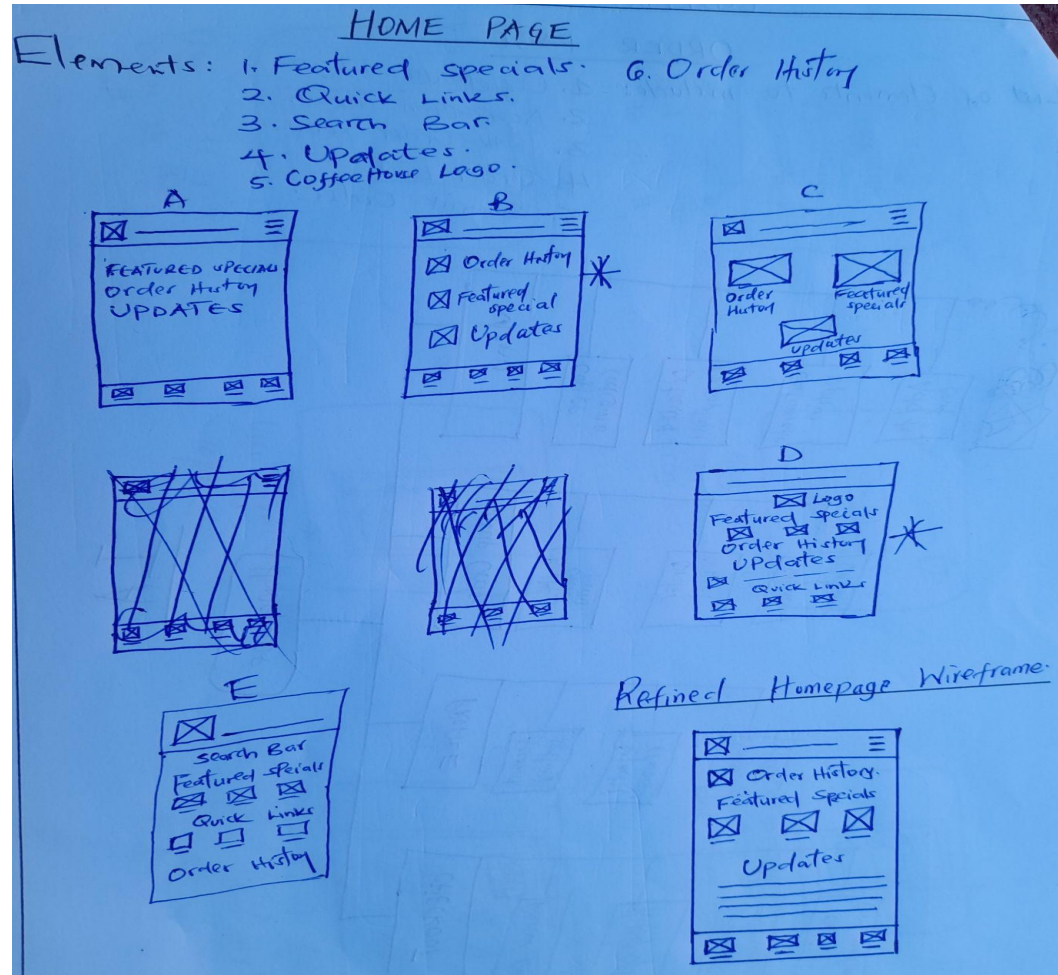 HOME PAGE
Elements: 1. Featured specials. 6. Order History
2. Quick Links.
3. Search Bar.
4. Updates.
5. CoffeeHouse Logo.
A
FEATURED SPECIALS
Order History
UPDATES
B
Order History
Featured
special
Updates
C
Order
History
Featured
specials
updates
D
Logo
Featured Specials
Order History
UPdates
Quick Links
E
Search Bar
Featured Specials
Quick Links
Order History
Refined Homepage Wireframe.
Order History.
Featured Specials
Updates